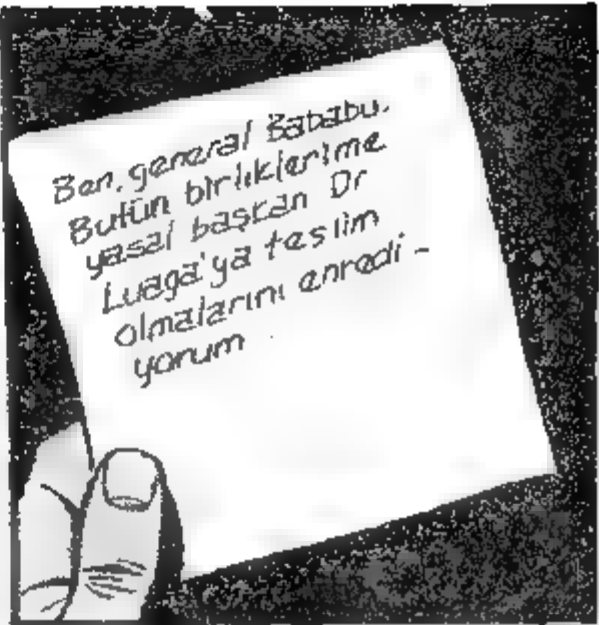 Ben, general Bababu.
Bütün birliklerime
yasal başkan Dr
Luaga'ya teslim
olmalarını enredi-
yorum